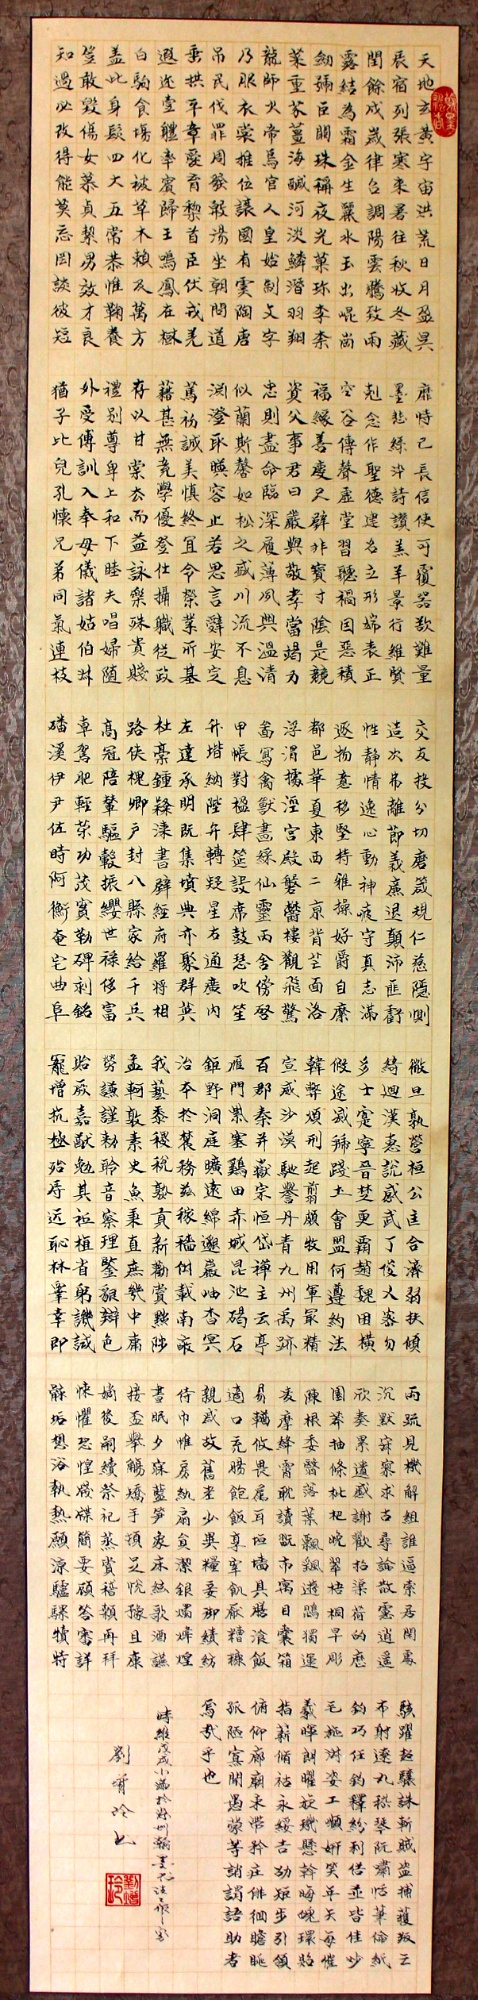 天地玄黃宇宙洪荒日月盈昃
辰宿列張寒來暑往秋收冬藏
閏餘成歲律呂調陽雲騰致雨
露結為霜金生麗水玉出崐崗
劍號巨闕珠稱夜光菓珍李柰
菜重芥薑海鹹河淡鱗潛羽翔
龍師火帝鳥官人皇始制文字
乃服衣裳推位讓國有虞陶唐
吊民伐罪周發殷湯坐朝問道
垂拱平章愛育黎首臣伏戎羌
遐邇壹體率賓歸王鳴鳳在樹
白駒食場化被草木賴及萬方
蓋此身髮四大五常恭惟鞠養
豈敢毀傷女慕貞絜男效才良
知過必改得能莫忘罔談彼短
靡恃己長信使可覆器欲難量
墨悲絲染詩讚羔羊景行維賢
剋念作聖德建名立形端表正
空谷傳聲虛堂習聽禍因惡積
福緣善慶尺璧非寶寸陰是競
資父事君曰嚴與敬孝當竭力
忠則盡命臨深履薄夙興溫凊
似蘭斯馨如松之盛川流不息
淵澄取暎容止若思言辭安定
篤初誠美慎終宜令榮業所基
藉甚無竟學優登仕攝職從政
存以甘棠去而益詠樂殊貴賤
禮別尊卑上和下睦夫唱婦隨
外受傅訓入奉母儀諸姑伯叔
猶子比兒孔懷兄弟同氣連枝
交友投分切磨箴規仁慈隱惻
造次弗離節義廉退顛沛匪虧
性靜情逸心動神疲守真志滿
逐物意移堅持雅操好爵自縻
都邑華夏東西二京背芒面洛
浮渭據涇宮殿磐鬱樓觀飛驚
圖寫禽獸畫綵仙靈丙舍傍啟
甲帳對楹肆筵設席鼓瑟吹笙
升堦納陛弁轉疑星右通廣內
左達承明既集墳典亦聚群英
杜稾鍾隸漆書壁經府羅將相
路俠槐卿戶封八縣家給千兵
高冠陪輦驅轂振纓世祿侈富
車駕肥輕策功茂實勒碑刻銘
磻溪伊尹佐時阿衡奄宅曲阜
微旦孰營桓公匡合濟弱扶傾
綺迴漢惠說感武丁俊乂密勿
多士寔寧晉楚更霸趙魏困橫
假途滅虢踐土會盟何遵約法
韓弊煩刑起翦頗牧用軍最精
宣威沙漠馳譽丹青九州禹跡
百郡秦并嶽宗恒岱禪主云亭
雁門紫塞雞田赤城昆池碣石
鉅野洞庭曠遠綿邈巖岫杳冥
治本於農務茲稼穡俶載南畝
我藝黍稷稅熟貢新勸賞黜陟
孟軻敦素史魚秉直庶幾中庸
勞謙謹勅聆音察理鑒貌辯色
貽厥嘉猷勉其祗植省躬譏誡
寵增抗極殆辱近恥林皋幸即
兩疏見機解組誰逼索居閒處
沉默寂寥求古尋論散慮逍遙
欣奏累遣慼謝歡招渠荷的歷
園莽抽條枇杷晚翠梧桐早彫
陳根委翳落葉飄颻遊鵾獨運
凌摩絳霄耽讀翫市寓目囊箱
易輶攸畏屬耳垣墻具膳飡飯
適口充腸飽飫享宰飢厭糟糠
親戚故舊老少異糧妾御績紡
侍巾帷房紈扇員潔銀燭煒煌
晝眠夕寐藍筍象床絃歌酒讌
接盃舉觴矯手頓足悅豫且康
嫡後嗣續祭祀蒸嘗稽顙再拜
悚懼恐惶牋牒簡要顧答審詳
骸垢想浴執熱願涼驢騾犢特
駭躍超驤誅斬賊盜捕獲叛亡
布射遼丸嵇琴阮嘯恬筆倫紙
鈞巧任釣釋紛利俗並皆佳妙
毛施淑姿工顰妍笑年矢每催
羲暉朗曜旋璣懸斡晦魄環照
指薪脩祜永綏吉劭矩步引領
俯仰廊廟束帶矜庄徘徊瞻眺
孤陋寡聞愚蒙等誚謂語助者
焉哉乎也
時維戊戌小滿於州翰墨書法工作室